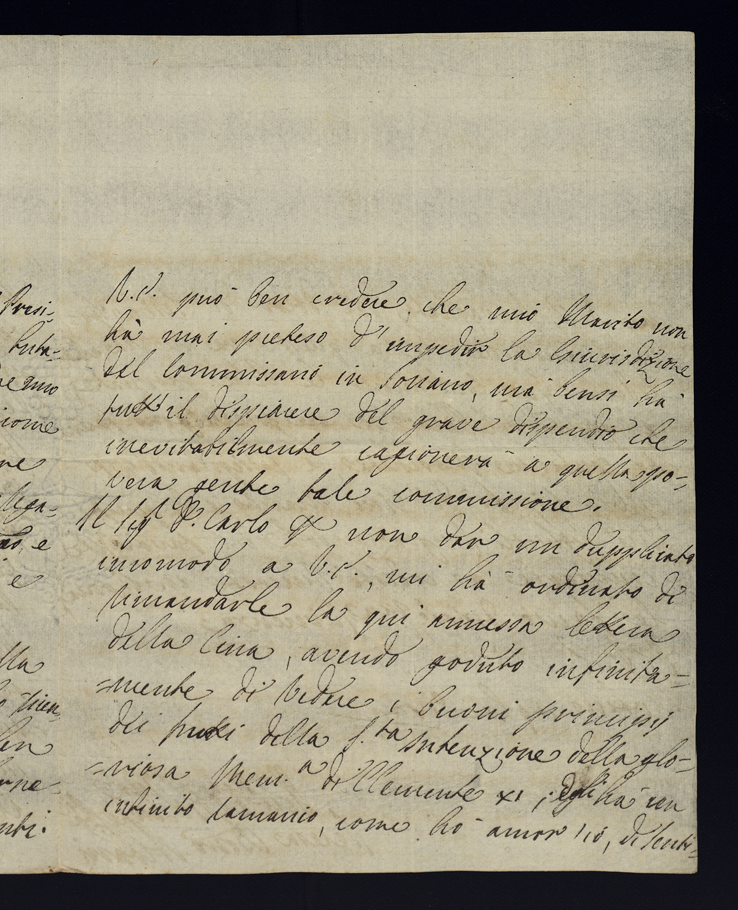 Presi-
tuta-
ne uno
zione
ne
e
e
lla
ben
V.S. può ben credere, che mio Marito non
hà mai preteso d'impedir la Giurisdizione
del Commissario in Soriano, mà bensì hà
tutto il dispiacere del grave dispendio che
inevitabilmente cagionerà a quella po-
vera gente tale commissione.
Il Sigr D. Carlo p non dar un dupplicato
incomodo a V.S., mi hà ordinato di
rimandarle la qui annessa lettera
della Cina, avendo goduto infinita=
=mente di vedere i buoni principij
dei frutti della S.ta Intenzione della glo-
=riosa Mem.a di Clemente XI; Egli hà un
infinito ramarico, come hò ancor' io, di senti=